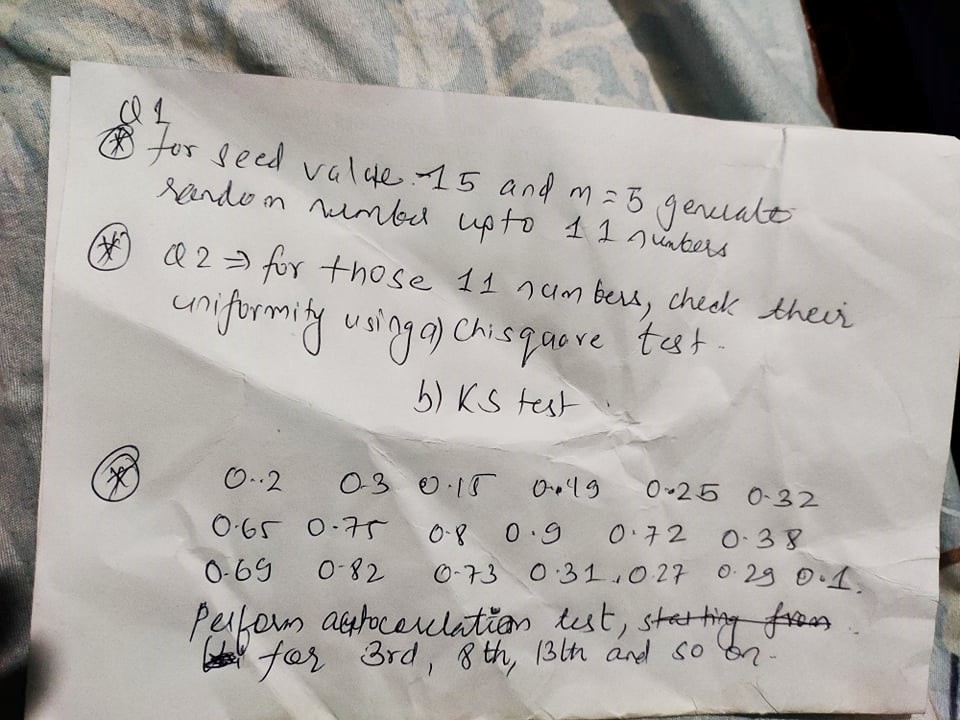 Q1
* for seed value 15 and m = 5 generate
random number upto 11 numbers
* Q2 ⇒ for those 11 numbers, check their
uniformity using a) Chisquare test.
b) KS test
* 0.2 0.3 0.15 0.49 0.25 0.32
0.65 0.75 0.8 0.9 0.72 0.38
0.69 0.82 0.73 0.31, 0.27 0.29 0.1.
Perform autocorelation test, starting from
for 3rd, 8th, 13th and so on.